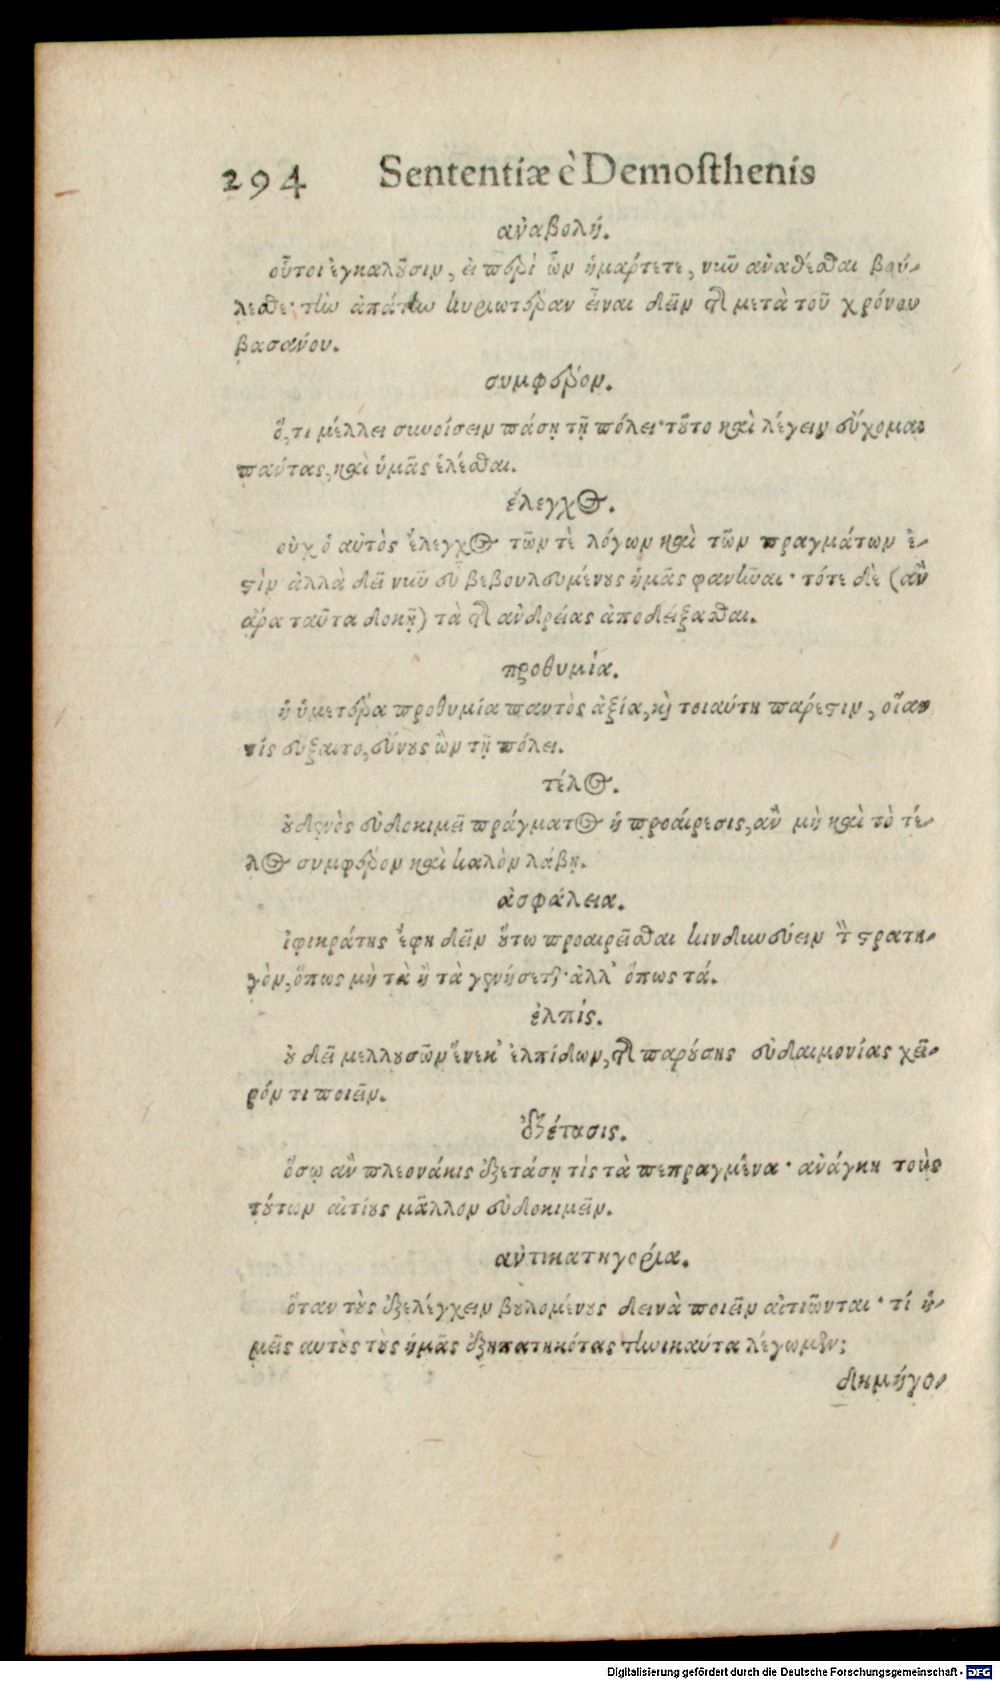 294 Sententiæ è Demosthenis
ἀναβολή.
οὗτοι ἐγκαλοῦσιν, εἰ περὶ ὧν ἡμάρτετε, νῦν ἀναθέσθαι βού-
λεσθε· τὴν ἀπάτην κυριωτέραν εἶναι δεῖν τῆς μετὰ τοῦ χρόνου
βασάνου.
συμφέρον.
ὅ, τι μέλλει συνοίσειν πάσῃ τῇ πόλει· τοῦτο καὶ λέγειν εὔχομαι
πάντας, καὶ ὑμᾶς ἑλέσθαι.
ἔλεγχος.
οὐχ ὁ αὐτὸς ἔλεγχος τῶν τὲ λόγων καὶ τῶν πραγμάτων ἐ-
στὶν ἀλλὰ δεῖ νῦν εὖ βεβουλευμένους ἡμᾶς φανῆναι· τότε δὲ (ἂν
ἄρα ταῦτα δοκῇ) τὰ τῆς ἀνδρείας ἀποδείξασθαι.
προθυμία.
ἡ ὑμετέρα προθυμία παντὸς ἀξία, καὶ τοιαύτη πάρεστιν, οἵαν
τίς εὔξαιτο, εὔνους ὢν τῇ πόλει.
τέλος.
οὐδενὸς εὐδοκιμεῖ πράγματος ἡ προαίρεσις, ἂν μὴ καὶ τὸ τέ-
λος συμφέρον καὶ καλὸν λάβῃ.
ἀσφάλεια.
ἰφικράτης ἔφη δεῖν οὕτω προαιρεῖσθαι κινδυνεύειν τὸν στρατη-
γὸν, ὅπως μὴ τὰ ἢ τὰ γενήσεται· ἀλλ' ὅπως τά.
ἐλπίς.
οὐ δεῖ μελλουσῶν ἕνεκ' ἐλπίδων, τῆς παρούσης εὐδαιμονίας χεῖ-
ρόν τι ποιεῖν.
ἐξέτασις.
ὅσῳ ἂν πλεονάκις ἐξετάσῃ τὶς τὰ πεπραγμένα· ἀνάγκη τοὺς
τούτων αἰτίους μᾶλλον εὐδοκιμεῖν.
ἀντικατηγορία.
ὅταν τοὺς ἐξελέγχειν βουλομένους δεινὰ ποιεῖν αἰτιῶνται· τί ἡ-
μεῖς αυτοὺς τοὺς ἡμᾶς ἐξηπατηκότας τηνικαύτα λέγωμεν;
δημήγο-
Digitalisierung gefördert durch die Deutsche Forschungsgemeinschaft - DFG